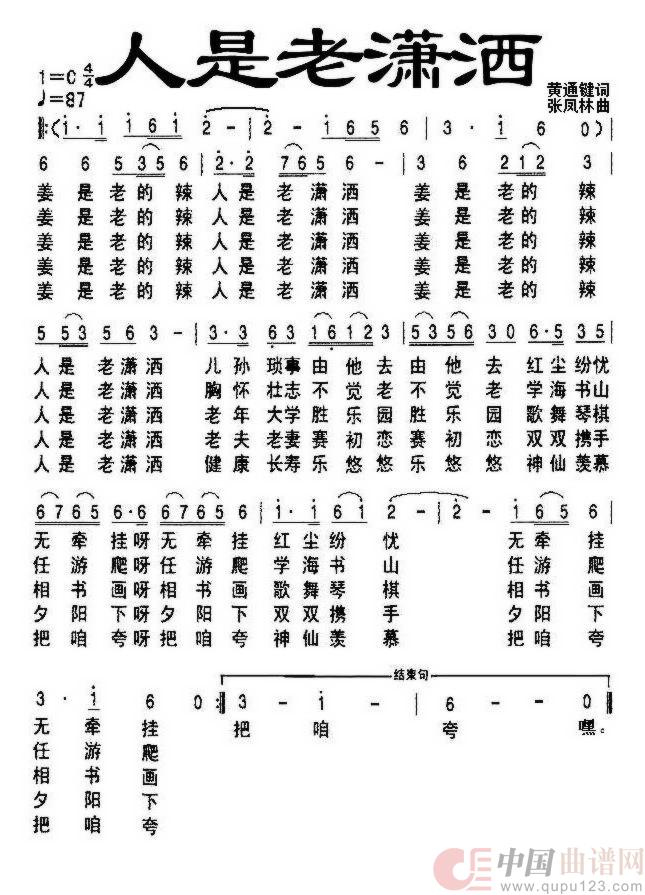 人是老潇洒
1=C 4/4
♩=87
黄通键词
张凤林曲
‖:(i·i i6i | 2̇ - | 2̇·i | i65 | 3·i | 6 0)|
6 6 535 6 | 2̇·2̇ 765 6 - | 3 6 212 3 |
姜是老的辣 人是老潇洒 姜是老的辣
姜是老的辣 人是老潇洒 姜是老的辣
姜是老的辣 人是老潇洒 姜是老的辣
姜是老的辣 人是老潇洒 姜是老的辣
姜是老的辣 人是老潇洒 姜是老的辣
5 53 56 3 - | 3·3 63 1612 3 | 5356 30 6·5 35 |
人是老潇洒 儿孙琐事由他去由他去红尘纷忧
人是老潇洒 胸怀壮志不觉老不觉老学海书山
人是老潇洒 老年大学胜乐园胜乐园歌舞琴棋
人是老潇洒 老夫老妻赛初恋赛初恋双双携手
人是老潇洒 健康长寿乐悠悠乐悠悠神仙羡慕
6765 6·6 6765 6 | i·i 6i 2̇ - | 2̇ - i65 6 |
无牵挂呀无牵挂 红尘纷忧 无牵挂
任游爬呀任游爬 学海书山 任游爬
相书画呀相书画 歌舞琴棋 相书画
夕阳下呀夕阳下 双双携手 夕阳下
把咱夸呀把咱夸 神仙羡慕 把咱夸
结束句
3·i 6 0 :‖ 3 - i - | 6 - - 0 ‖
无牵挂 把咱夸嘿。
任游爬
相书画
夕阳下
把咱夸
中国曲谱网
www.qupu123.com